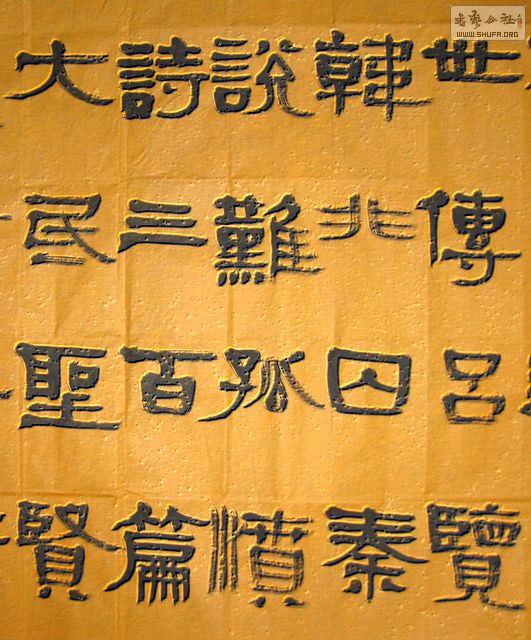 世傳呂覽
韓非囚秦
說難孤憤
詩三百篇
大民聖賢
書藝公社
WWW.SHUFA.ORG